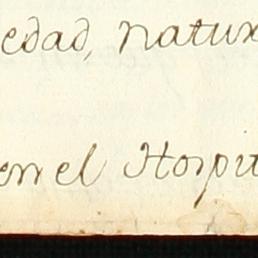 edad, natur
en el Hospit